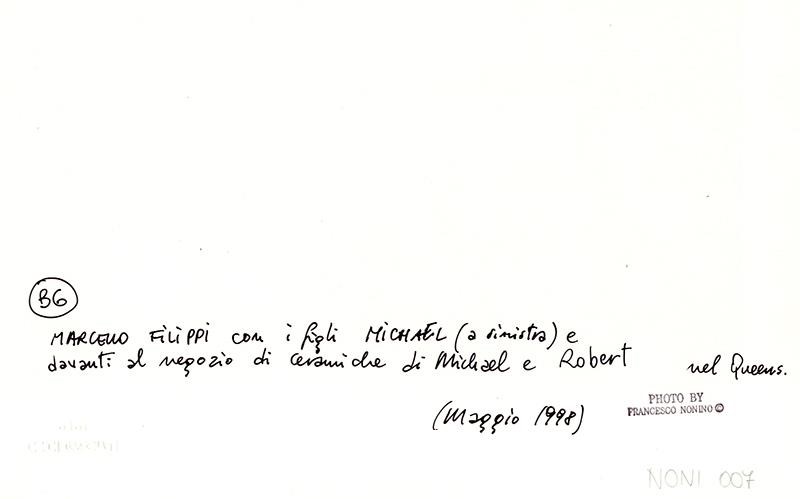 B6
MARCELLO FILIPPI con i figli MICHAEL (a sinistra) e
davanti al negozio di ceramiche di Michael e Robert nel Queens.
(Maggio 1998)
PHOTO BY
FRANCESCO NONINO ©
NONI 007